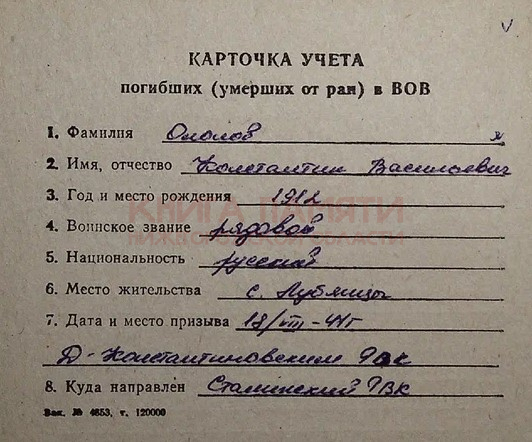 КАРТОЧКА УЧЕТА
погибших (умерших от ран) в ВОВ
1. Фамилия
2. Имя, отчество Константин Васильевич
3. Год и место рождения 1912
КНИГА ПАМЯТИ
НИЖЕГОРОДСКОЙ ОБЛАСТИ
4. Воинское звание рядовой
5. Национальность русский
6. Место жительства с.
7. Дата и место призыва 18/VIII-41г
Д-Константиновским РВК
8. Куда направлен Сталинский РВК
Зак. № 4853, т. 120000